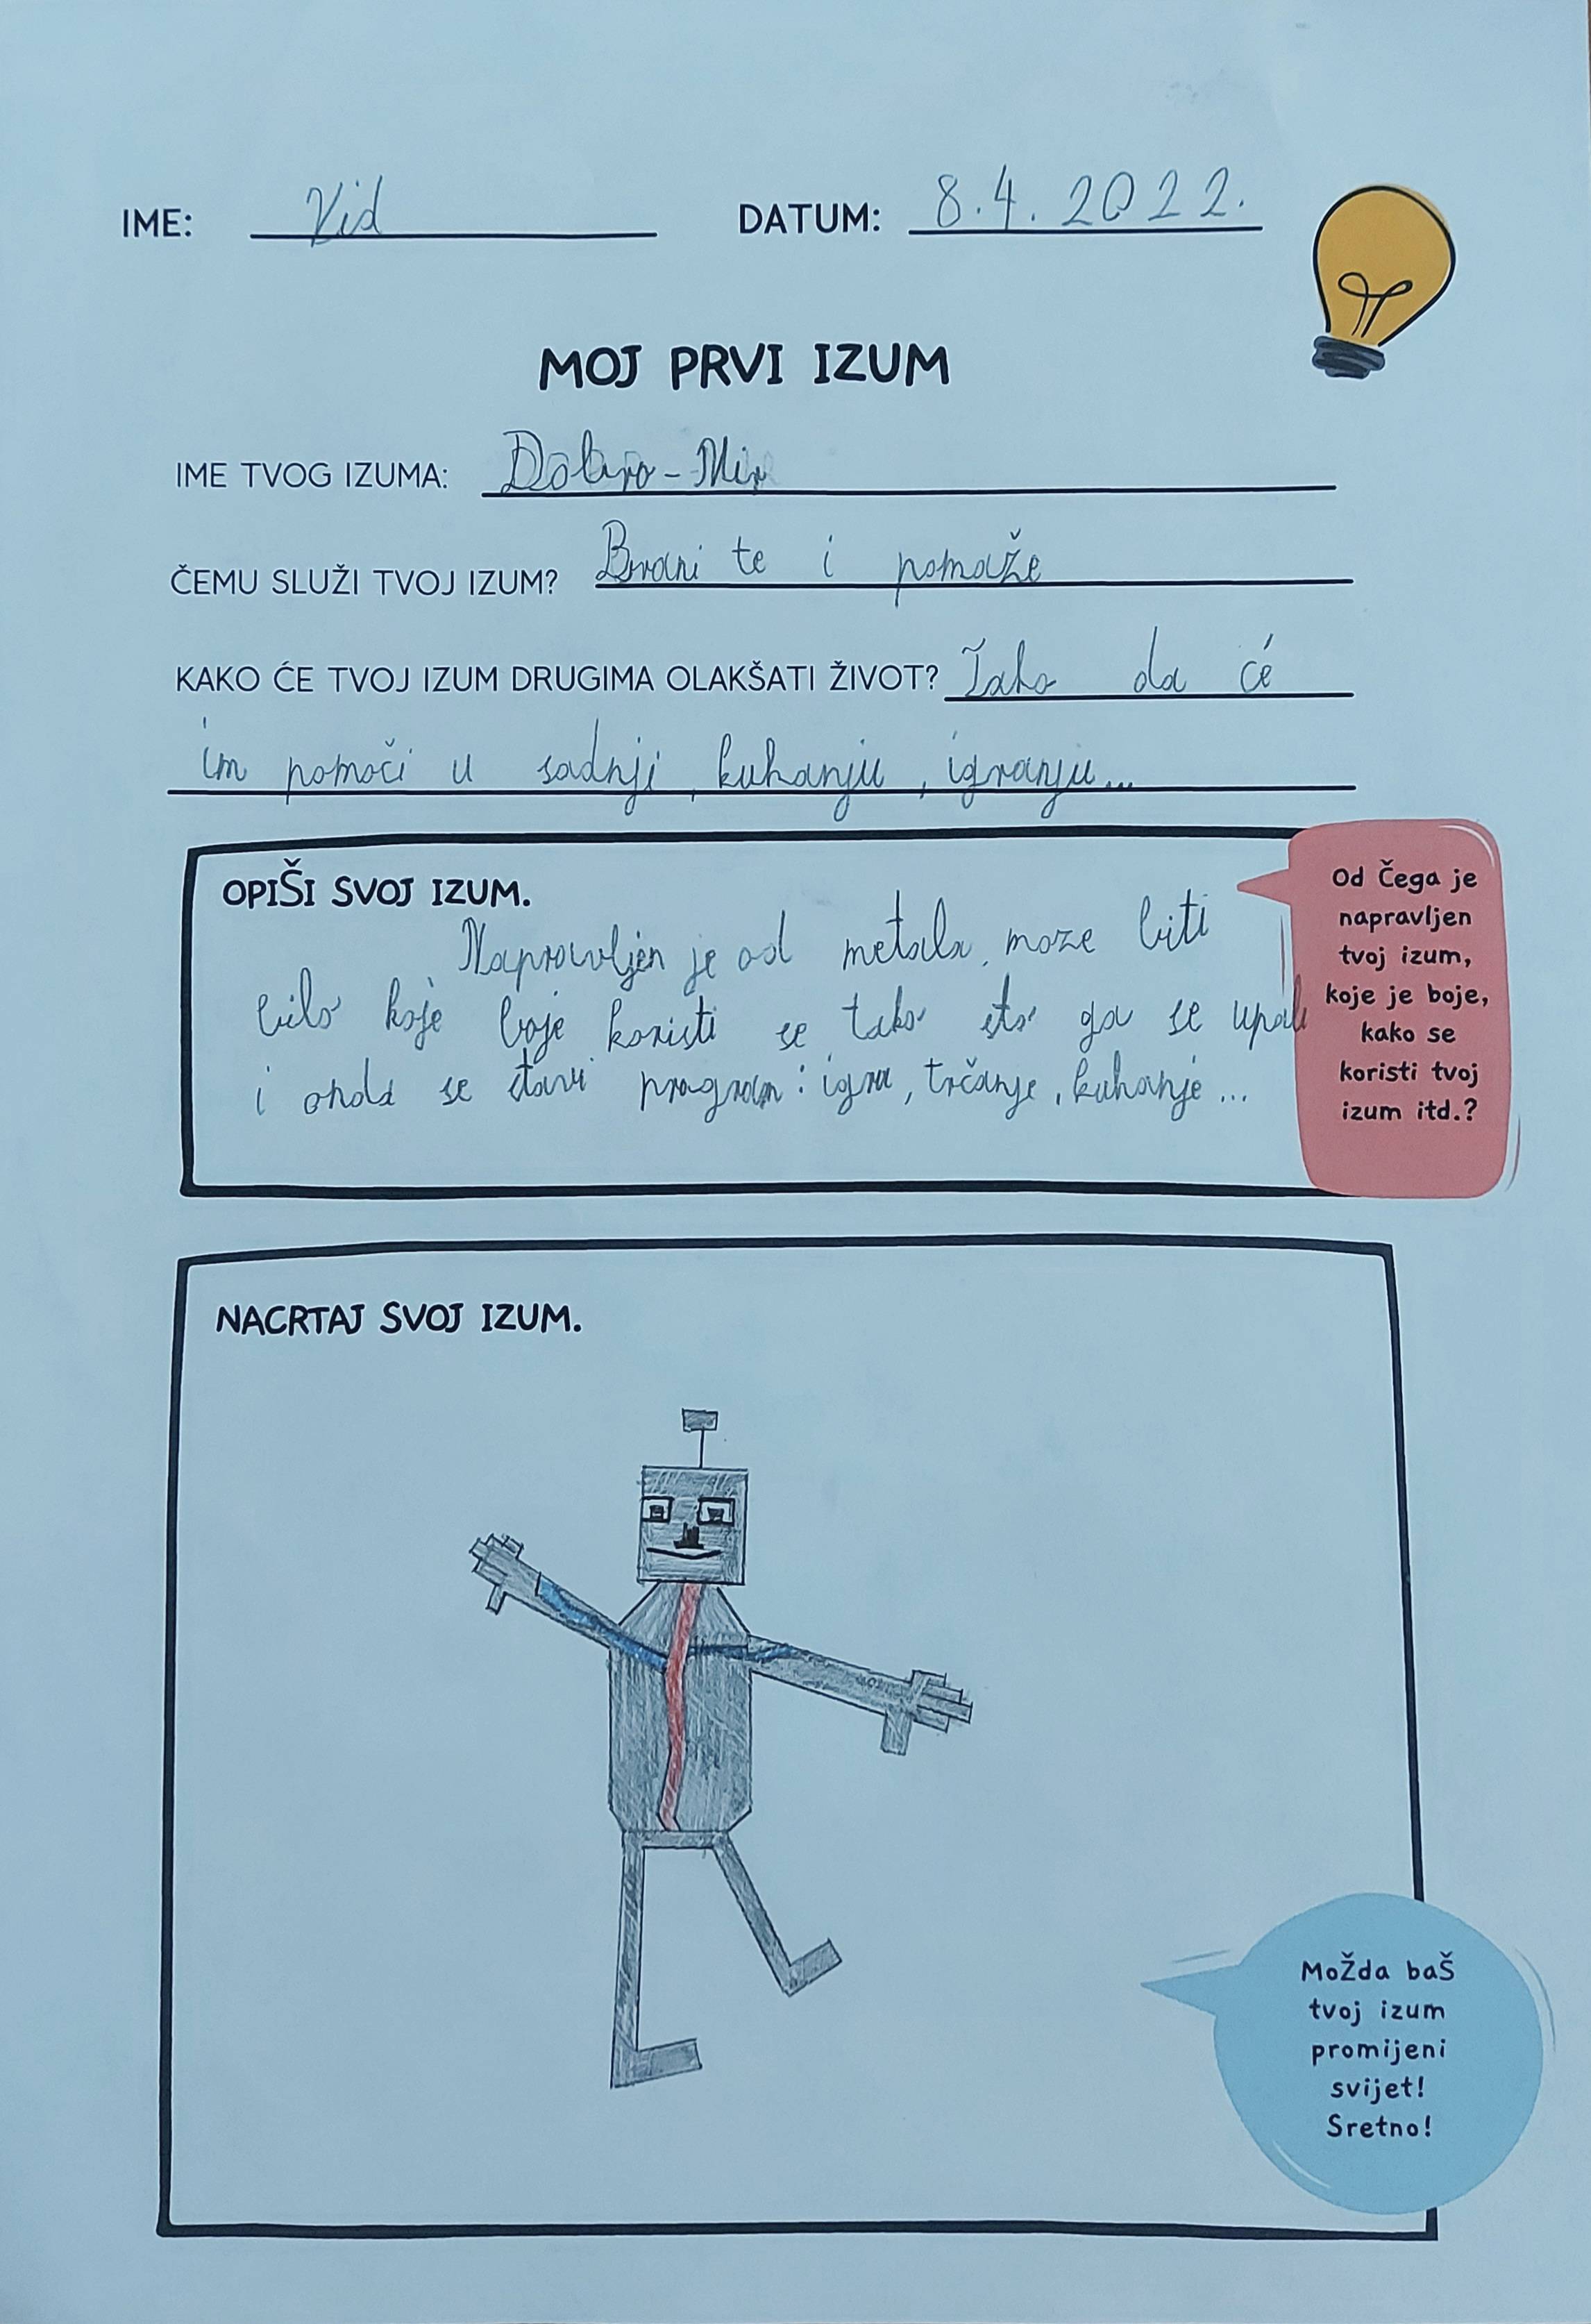 IME: Vid DATUM: 8.4.2022.
MOJ PRVI IZUM
IME TVOG IZUMA: Dobro-Mir
ČEMU SLUŽI TVOJ IZUM? Brani te i pomaže
KAKO ĆE TVOJ IZUM DRUGIMA OLAKŠATI ŽIVOT? Tako da će
im pomoči u sadnji, kuhanju, igranju...
OPIŠI SVOJ IZUM.
Napravljen je od metala, moze biti
bilo koje boje koristi se tako što ga se upali
i onda se stavi program: igra, trčanje, kuhanje...
Od Čega je
napravljen
tvoj izum,
koje je boje,
kako se
koristi tvoj
izum itd.?
NACRTAJ SVOJ IZUM.
MoŽda baŠ
tvoj izum
promijeni
svijet!
Sretno!